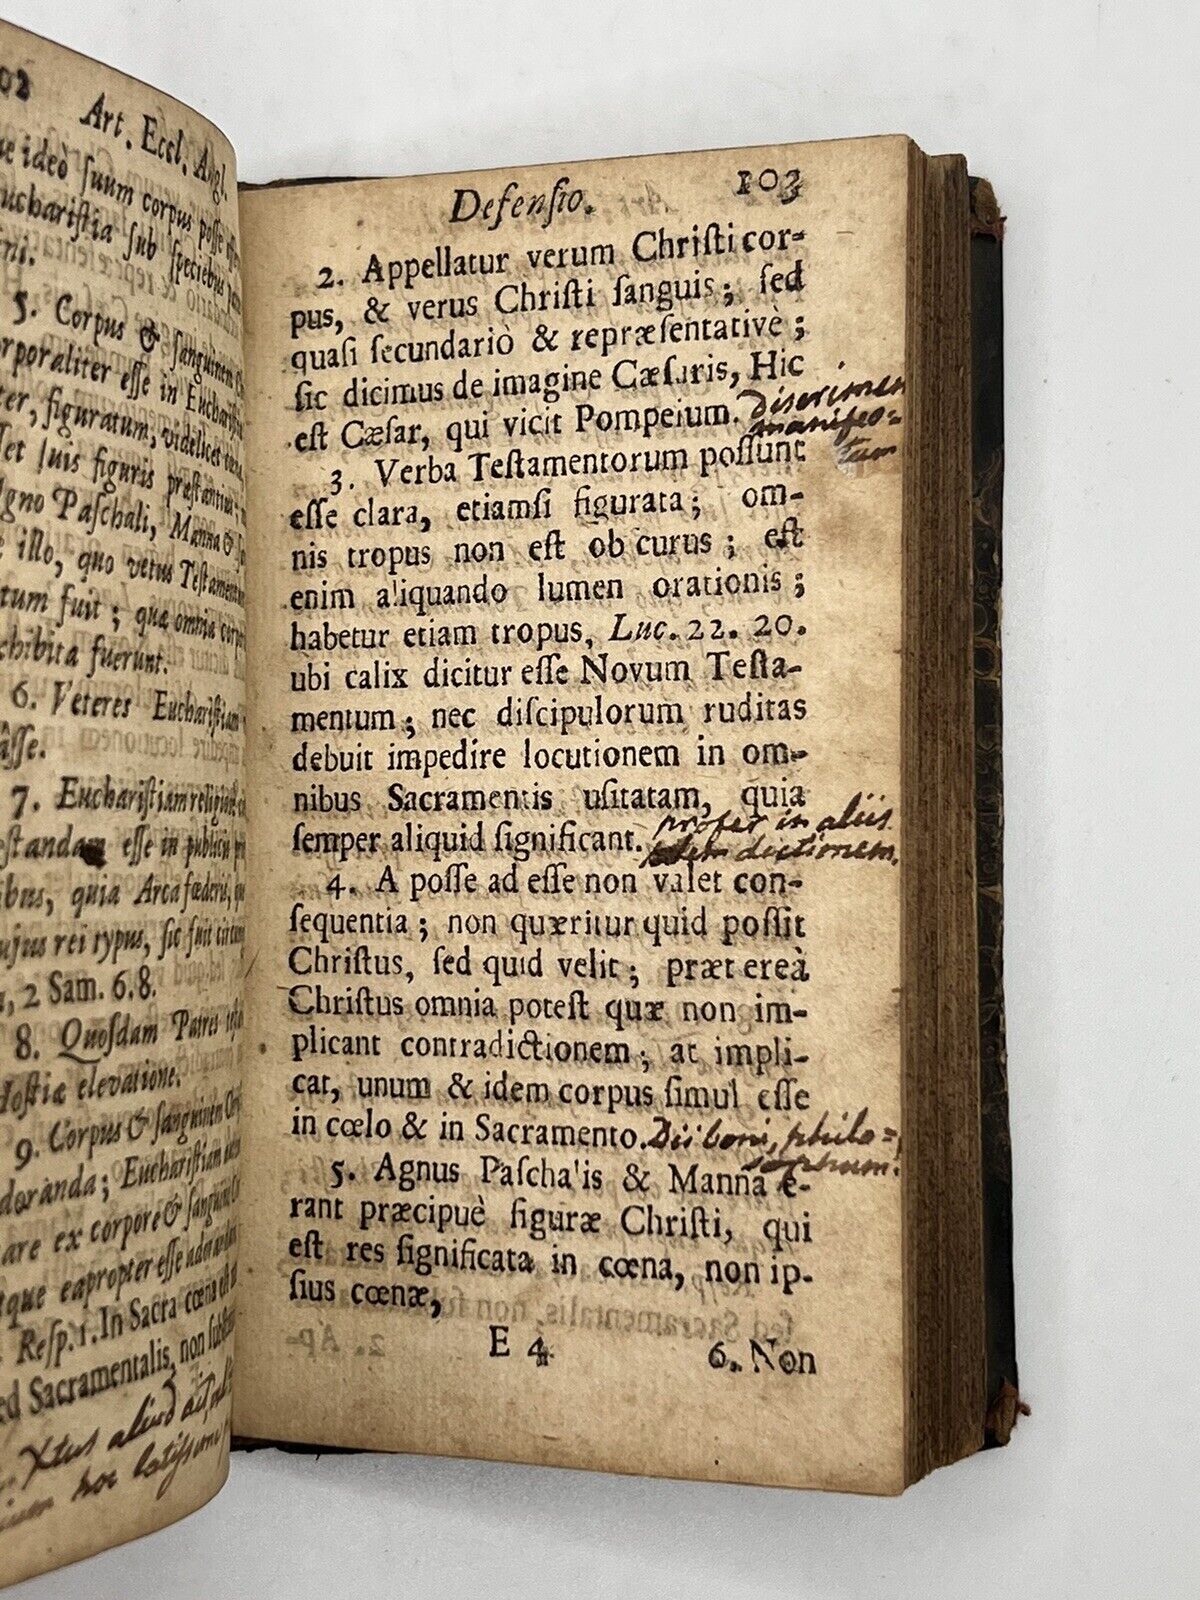 02 Art. Eccl. Angl.
ideò ſuum corpus poſſe
ſub ſpeciebus
5. Corpus & ſanguinem
corporaliter eſſe in
figuratum, videlicet
ſuis figuris præſtantius;
Paſchali, Manna &
illo, quo vetus
fuit; quæ omnia
fuerunt.
6. Veteres Euchariſtiam
7. Euchariſtiam
eſſe in publicu
quia Arca fœderis,
rei typus, ſic fuit
2 Sam. 6.8.
8. Quoſdam Patres
elevatione.
9. Corpus & ſanguinem
Euchariſtiam
ex corpore & ſanguine
eapropter eſſe
Reſp. 1. In Sacra cœna
Sacramentalis, non
Xtus aliud
hoc
Defenſio. 103
2. Appellatur verum Chriſti cor-
pus, & verus Chriſti ſanguis; ſed
quaſi ſecundariò & repræſentativè;
ſic dicimus de imagine Cæſaris, Hic
eſt Cæſar, qui vicit Pompeium. Discrimen
manifes-
tum
3. Verba Teſtamentorum poſſunt
eſſe clara, etiamſi figurata; om-
nis tropus non eſt obſcurus; eſt
enim aliquando lumen orationis;
habetur etiam tropus, Luc. 22. 20.
ubi calix dicitur eſſe Novum Teſta-
mentum; nec diſcipulorum ruditas
debuit impedire locutionem in om-
nibus Sacramentis uſitatam, quia
ſemper aliquid ſignificant. profer in aliis
dictionem.
4. A poſſe ad eſſe non valet con-
ſequentia; non quæritur quid poſſit
Chriſtus, ſed quid velit; prætereà
Chriſtus omnia poteſt quæ non im-
plicant contradictionem; at impli-
cat, unum & idem corpus ſimul eſſe
in cœlo & in Sacramento. Dii boni, philo=
sophum.
5. Agnus Paſchalis & Manna e-
rant præcipuè figuræ Chriſti, qui
eſt res ſignificata in cœna, non ip-
ſius cœnæ,
E 4 6. Non